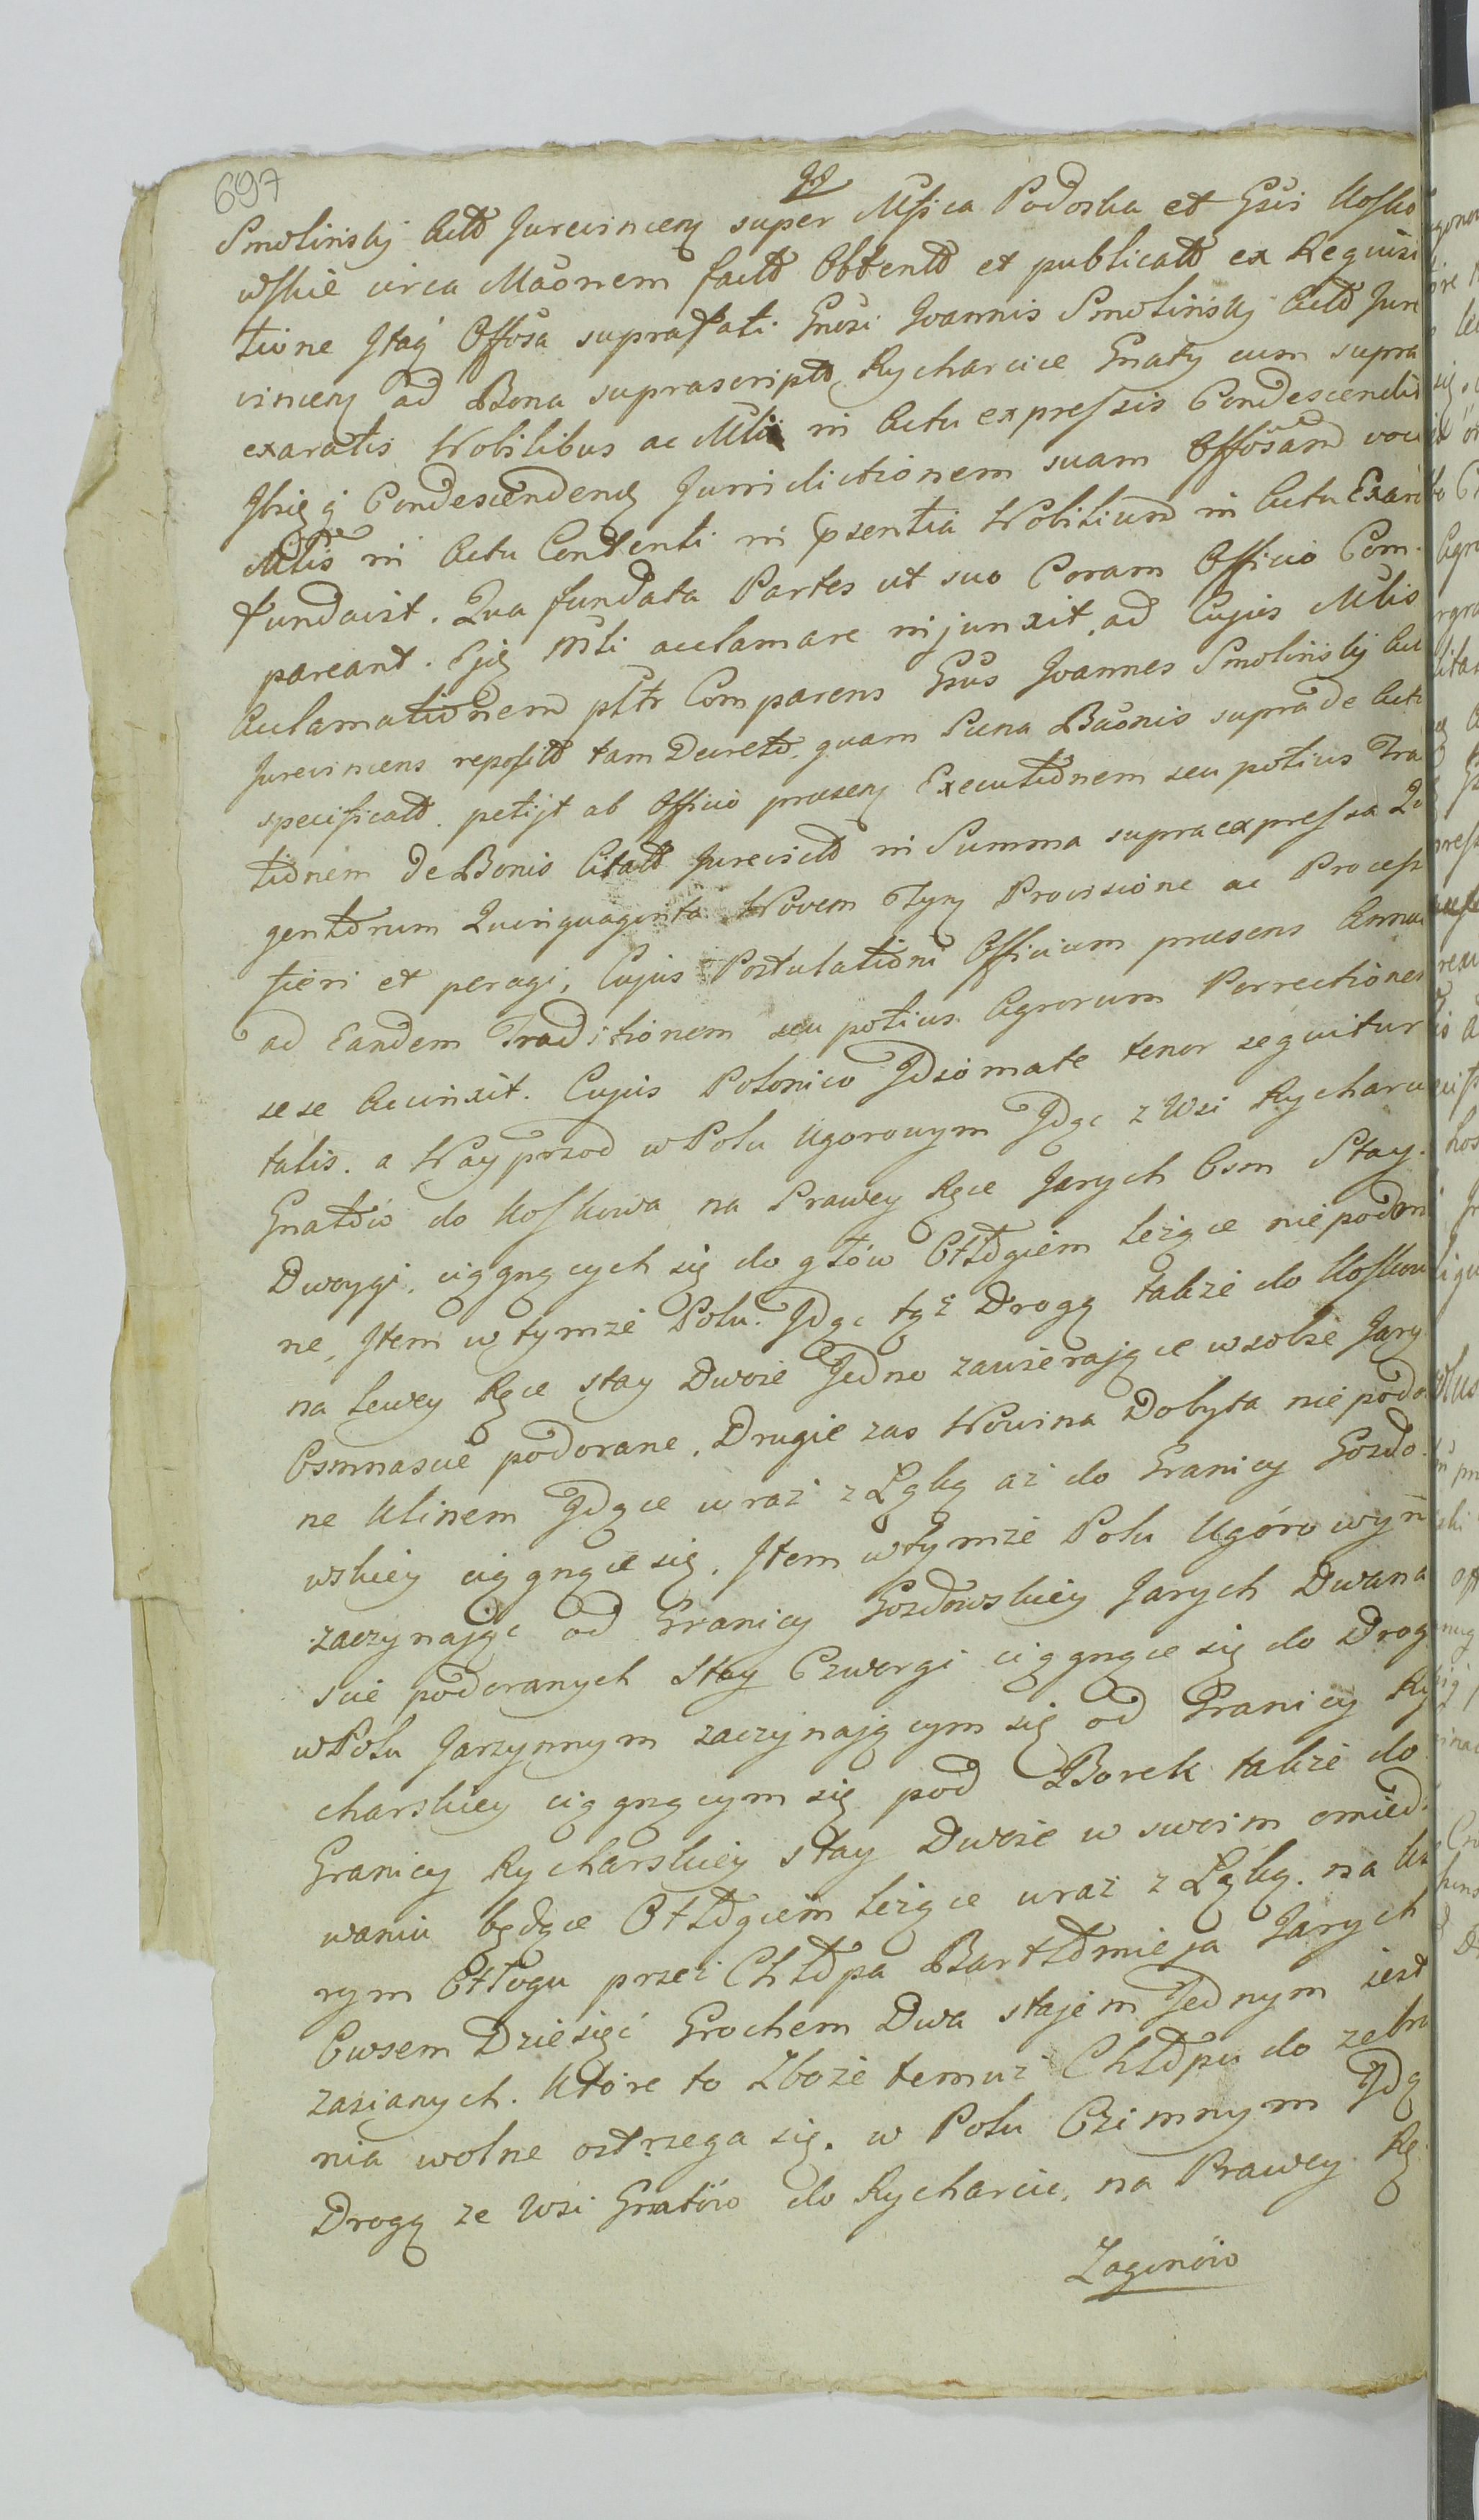 697
Smolinskÿ Actõ Jurevincens super Mssica Podoska et Gsis Kosko
wskie circa Mãonem factõ Obtentõ et publicatõ ex Requisi
tione Itaq Offosa supra fati Gnosi Joannis Smolinskÿ Actõ Jure
vincens ad Bona suprascriptõ Rycharcice Gnaty cum supra
exaratis Nobilibus ac Mli in Actu expressis Condescendit
Ibiq q Condescendens Jurisdictionem suam Offosam voce
Mlis in Actu Contenti in psentia Nobilium in Actu Exara
fundavit. Qua fundata Partes ut suo Coram Officio Com-
pareant. Ejq Mli acclamare injunxit, ad Cujus Mlis
Acclamationem pltr Comparens Gsus Joannes Smolinskÿ Act
Jurevincens reposito tam Decretõ quam Scena Bãonis supra de Actu
specificatõ. petijt ab Officio praesens Executionem seu potius Tra
tionem de Bonis Citatõ Jurevictõ in Summa supra expressa Qu
gentorum Quinquaginta Novem Tyns Provisione ac Process
fieri et peragi, Cujus Postulationi Officium praesens Annue
ad Eandem Traditionem seu potius Agrorum Porrectionem
sese Accinxit. Cujus Polonico Idiomate tenor sequitur
talis. a Nayprzod w Polu Ugorowym Idąc z Wsi Rycharci
Gnatow do Koskowa na Prawey Ręce Jarych Osm Stay.
Dwoygi, ciągnących się do głów Odłogiem leżące niepodora
ne, Item w tymże Polu. Idąc tąż Drogą także do Koskow
na Lewey Ręce stay Dwoie Jedno zawierające w sobie Jary
Osmnascie podorane, Drugie zas Nowina Dobyta niepodo
ne Klinem Idące wraz z Łąką aż do Granicy Gozdo
wskiey ciągnące się. Item w tymże Polu Ugórowym
zaczynając od Granicy Gozdowskiey Jarych Dwana
scie podoranych Stay Czworgi ciągnące się do Drog
w Polu Jarzynnym zaczynającym się od Granicy Ry
charskiey ciągnącym się pod Borek także do
Granicy Rycharskiey stay Dwoie w swoim omied
waniu będące Odłogiem leżące wraz z Łąką. na kt
rym Odłogu przez Chłopa Bartłomieja Jarych
Owsem Dziesięć Grochem Dwa stajem Jednym iest
zasianych. Które to Zboże temuż Chłopu do zebra
nia wolne ostrzega się. w Polu Oziminym Idą
Drogą ze Wsi Gnatow do Rycharcic, na Prawey Rę
Zagonów